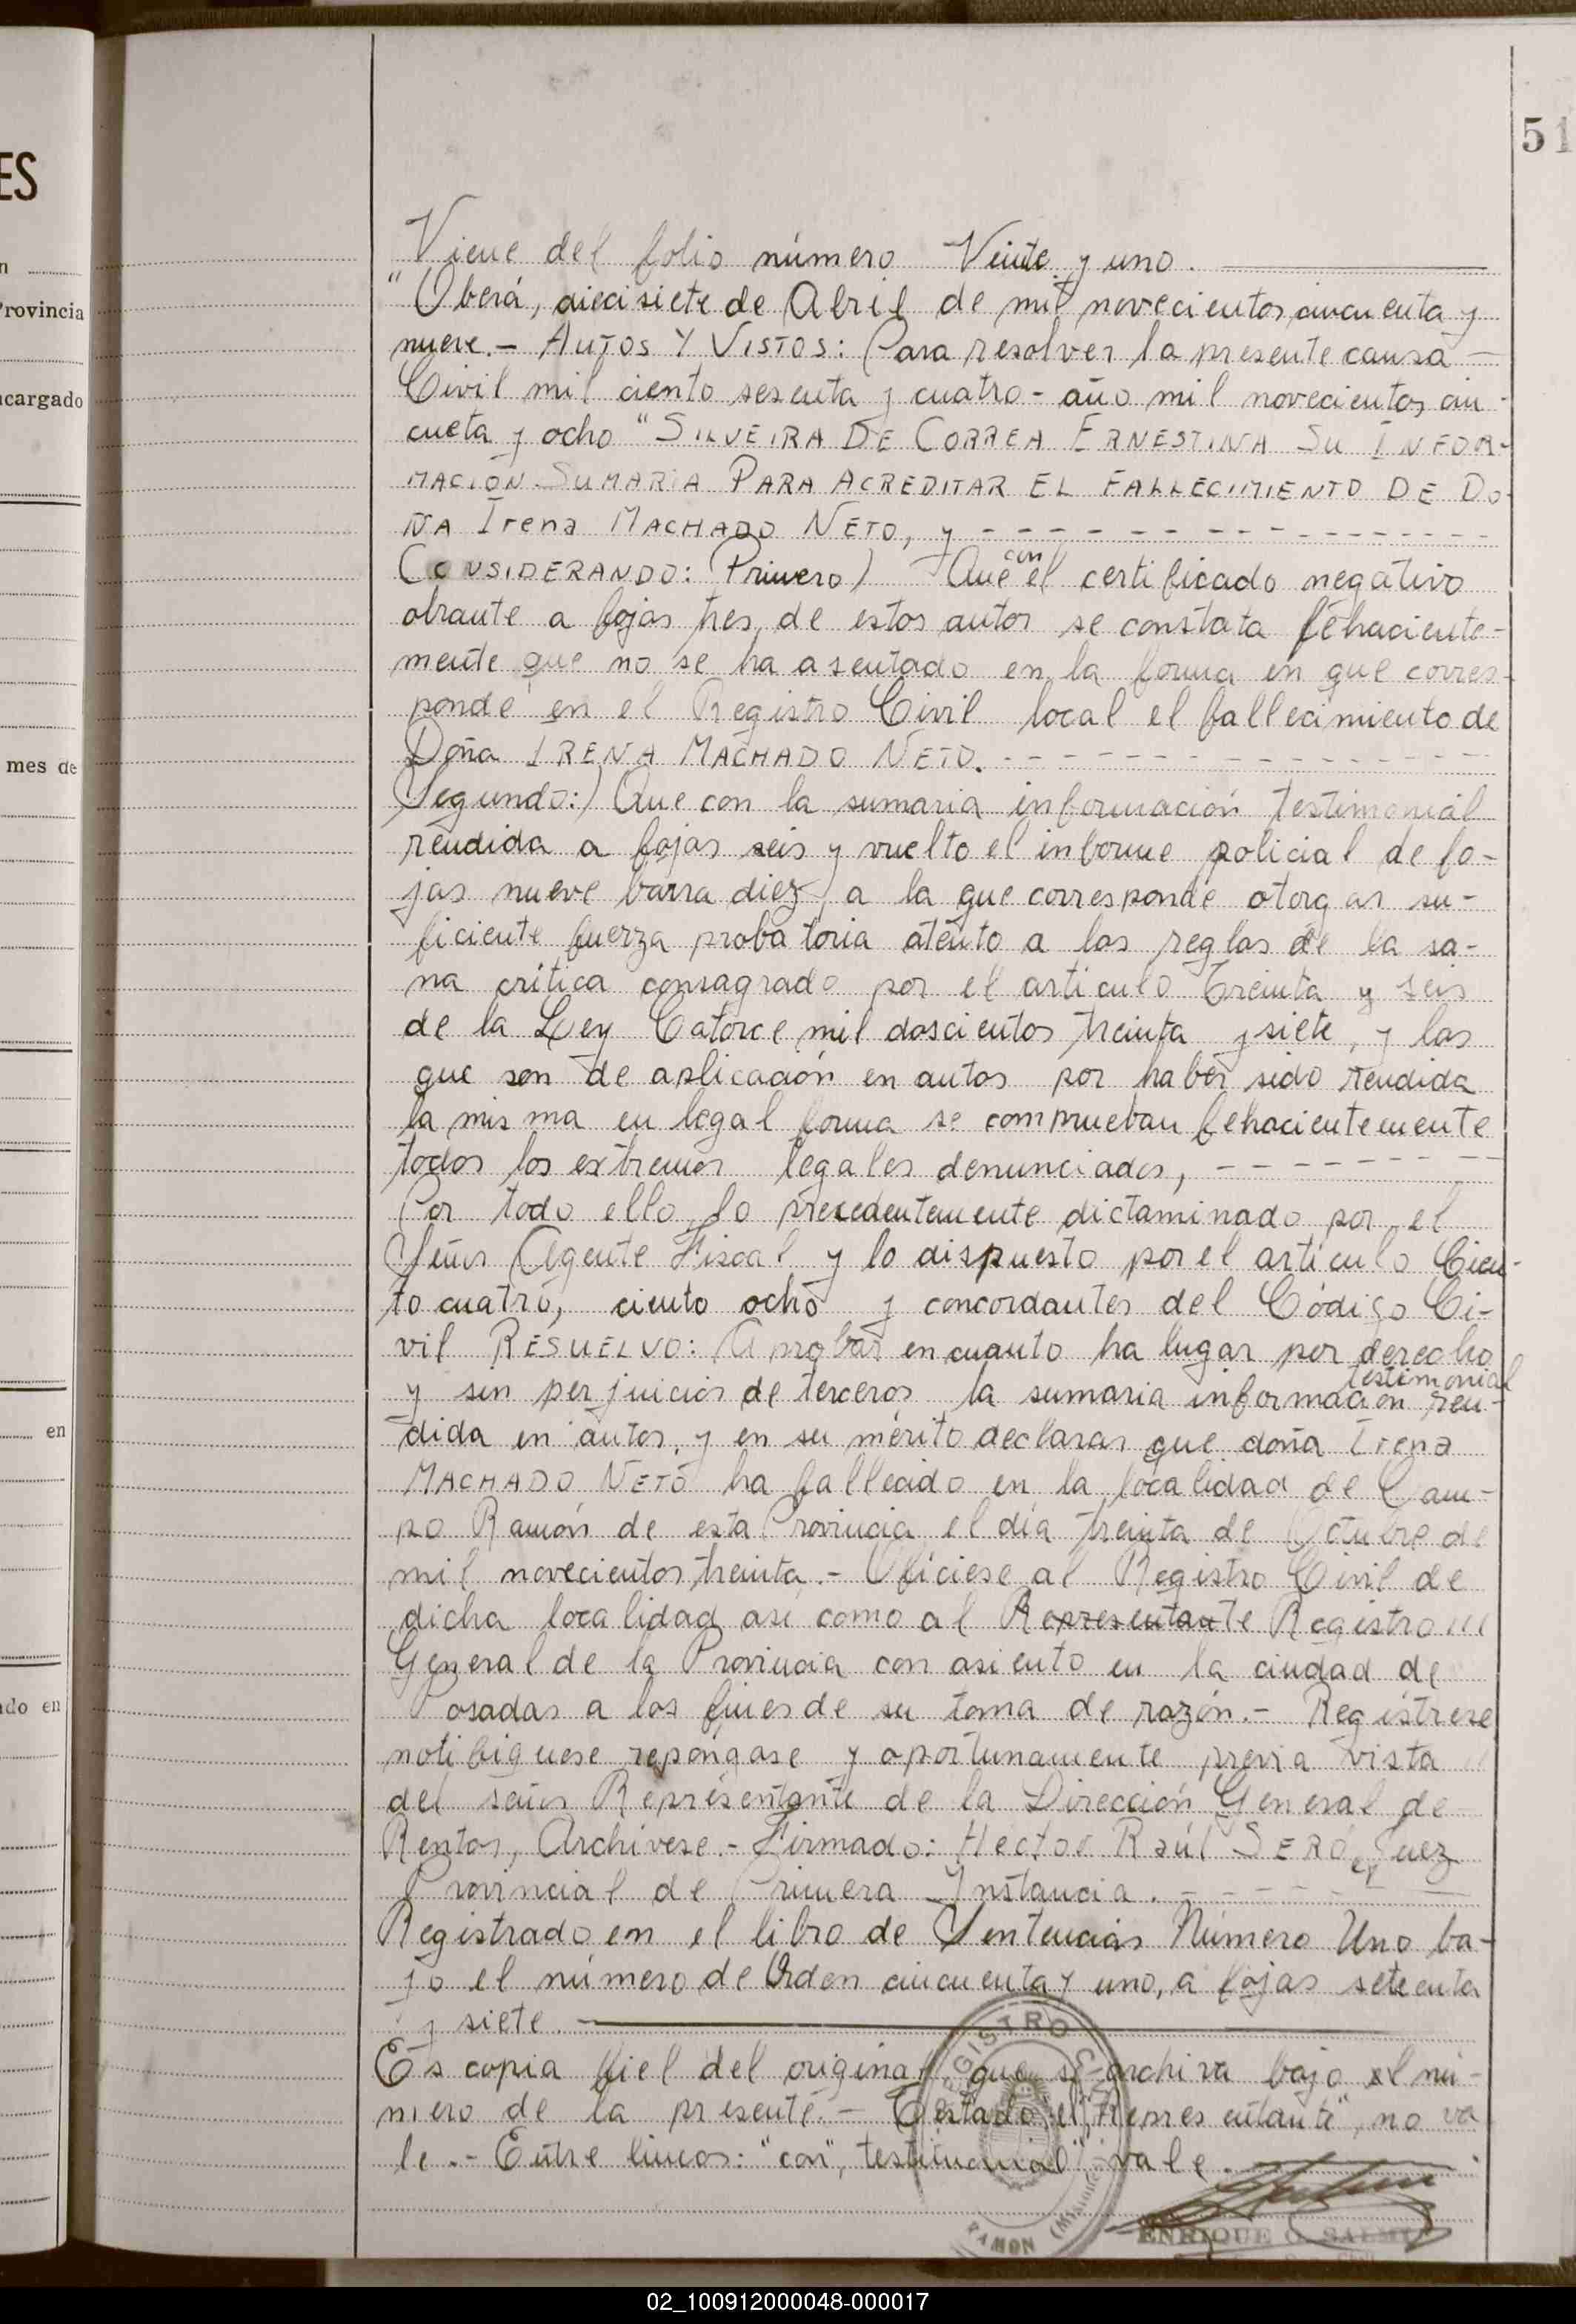 ES
n
Provincia
ncargado
mes de
en
ado en
51
Viene del folio número Veinte y uno.
"Oberá, diecisiete de Abril de mil novecientos cincuenta y
nueve.- AUTOS Y VISTOS: Para resolver la presente causa
Civil mil ciento sesenta y cuatro - año mil novecientos cin-
cueta y ocho "SILVEIRA DE CORREA ERNESTINA SU INFOR-
MACIÓN SUMARIA PARA ACREDITAR EL FALLECIMIENTO DE DO-
ÑA Irena MACHADO NETO, y - - - - - - - - - - - - - -
CONSIDERANDO: Primero) Que con el certificado negativo
obrante a fojas tres, de estos autos se constata fehaciente-
mente que no se ha asentado en la forma en que corres-
ponde en el Registro Civil local el fallecimiento de
Doña IRENA MACHADO NETO. - - - - - - - - - - - - -
Segundo:) Que con la sumaria información testimonial
rendida a fojas seis y vuelto el informe policial de fo-
jas nueve barra diez, a la que corresponde otorgar su-
ficiente fuerza probatoria atento a las reglas de la sa-
na crítica consagrado por el artículo Treinta y seis
de la Ley Catorce mil doscientos treinta y siete, y las
que son de aplicación en autos por haber sido rendida
la misma en legal forma se comprueban fehacientemente
todos los extremos legales denunciados, - - - - - - - -
Por todo ello, lo precedentemente dictaminado por el
Señor Agente Fiscal y lo dispuesto por el artículo Cien-
to cuatro, ciento ocho y concordantes del Código Ci-
vil RESUELVO: Aprobar en cuanto ha lugar por derecho
y sin perjuicios de terceros la sumaria información testimonial ren-
dida en autos, y en su mérito declaras que doña Irena
MACHADO NETO ha fallecido en la localidad de Cam-
po Ramón de esta Provincia el día treinta de Octubre de
mil novecientos treinta.- Ofíciese al Registro Civil de
dicha localidad así como al Representante Registro ///
General de la Provincia con asiento en la ciudad de
Posadas a los fines de su toma de razón.- Regístrese
notifiquese repóngase y oportunamente previa vista
del señor Representante de la Dirección General de
Rentas, Archívese.- Firmado: Héctor Raúl SERÓ, Juez
Provincial de Primera Instancia. - - - - - - -
Registrado en el libro de Sentencias Número Uno ba-
jo el número de Orden cincuenta y uno, a fojas setenta
y siete.
Es copia fiel del original que se archiva bajo el nú-
mero de la presente.- Testado: "el", "Representante", no va
le.- Entre líneas: "con", "testimonial", vale.
REGISTRO CIVIL
RAMON (Misiones)
ENRIQUE G.
02_100912000048-000017